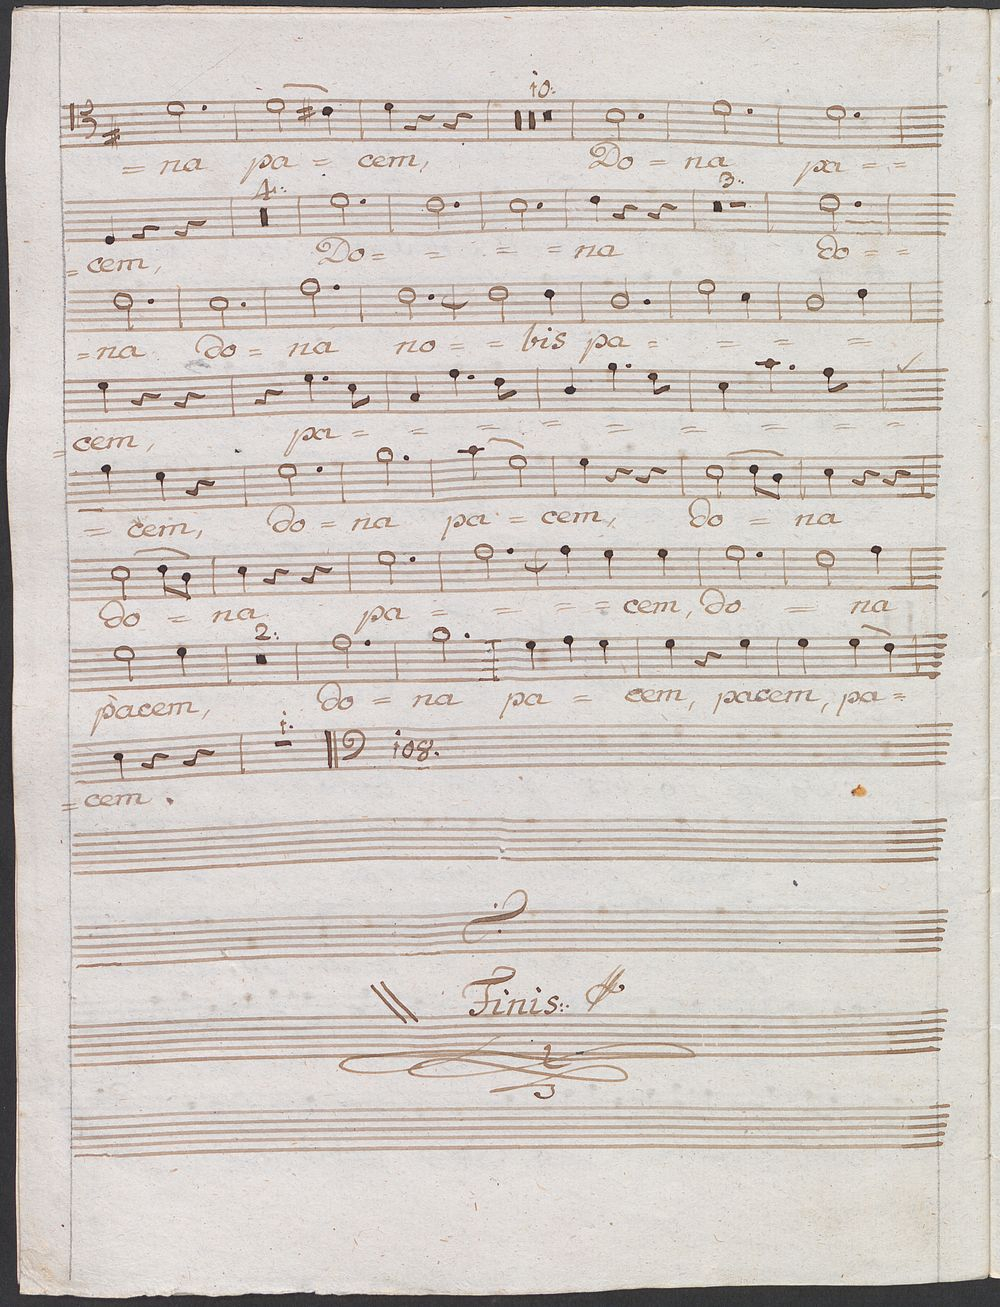 io.
= na pa = cem, Do = na pa = =
4. 3.
= cem, Do = = = = na do = =
= na do = na no = = bis pa = = = =
= cem, pa = = = = = = = =
= cem, do = na pa = cem, do = na
do = na pa = = = = cem, do = na
2.
pacem, do = na pa = cem, pacem, pa =
i.
io8.
= cem.
Finis: